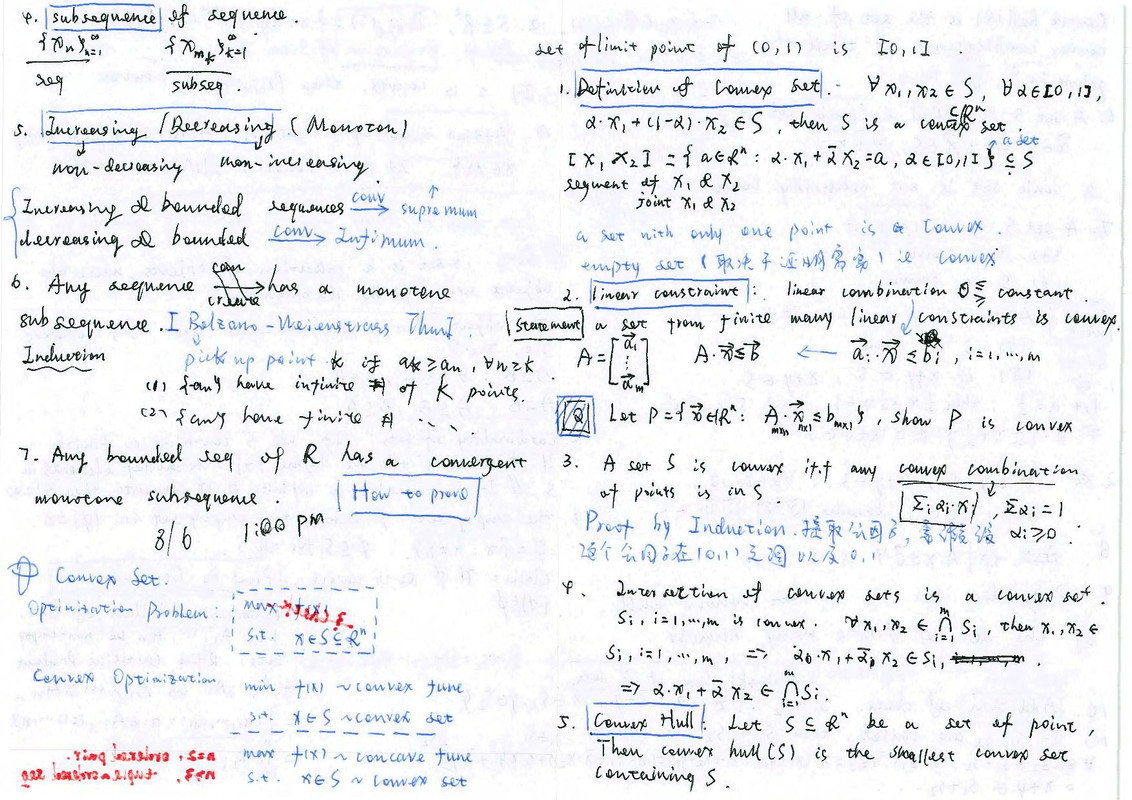 4. subsequence of sequence
{xn}∞k=1 {xnk}∞k=1
seq subseq.
5. Increasing / Decreasing (Monoton)
non-decreasing non-increasing
Increasing & bounded sequences conv → supremum
decreasing & bounded conv → Infimum.
6. Any sequence can create has a monotone
subsequence. [Bolzano-Weierstrass Thm]
Induction pick up point k if ak ≥ an, ∀n≥k
(1) {an} have infinite # of k points.
(2) {an} have finite # .....
7. Any bounded seq of R has a convergent
monotone subsequence. How to prove
8/6 1:00 pm
Convex Set.
Optimization Problem: max f(x)
s.t. x∈S⊆Rⁿ
Convex Optimization min f(x) ~ convex func
s.t. x∈S ~ convex set
max f(x) ~ concave func
s.t. x∈S ~ convex set
n=2, ordered pair
n≥3, tuple = ordered seq
set of limit point of (0,1) is [0,1]
1. Definition of Convex set :- ∀x1,x2∈S, ∀α∈[0,1],
α·x1+(1-α)·x2∈S, then S is a convex set.
⊆Rⁿ
[x1, x2] = {a∈Rⁿ: α·x1+ᾱx2=a, α∈[0,1]} ⊆ S
a set
segment of x1 & x2
joint x1 & x2
a set with only one point is a convex.
empty set (取决于证明需需) is convex
2. linear constraint: linear combination ≤ = ≥ constant.
Statement a set from finite many linear constraints is convex.
A = [a1 ⋮ am] A·x ≤ b ← ai·x ≤ bi, i=1,...,m
Q Let P={x∈Rⁿ: Amxn·xnx1 ≤ bmx1}, show P is convex
3. A set S is convex iff any convex combination
of points is in S Σi αi·xi Σαi=1
αi≥0.
Proof by Induction. 提取公因子,
这个公因子在(0,1)之间以及0,1.
4. Intersection of convex sets is a convex set.
Si, i=1,...,m is convex. ∀x1,x2∈⋂ᵐi=1 Si then x1,x2∈
Si, i=1,...,m, => α0·x1+ᾱ0x2∈Si,
=> α·x1+ᾱx2∈⋂ᵐi=1 Si.
5. Convex Hull: Let S⊆Rⁿ be a set of point,
Then convex hull(S) is the smallest convex set
containing S.